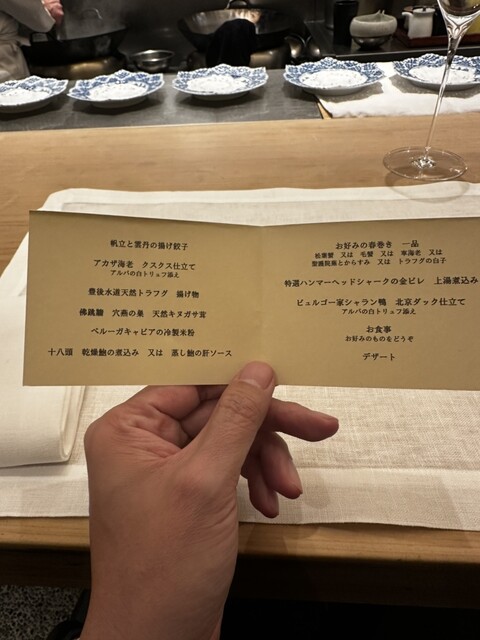 帆立と雲丹の揚げ餃子
アカザ海老 クスクス仕立て
アルバの白トリュフ添え
豊後水道天然トラフグ 揚げ物
佛跳牆 穴燕の巣 天然キヌガサ茸
ベルーガキャビアの冷製米粉
十八頭 乾燥鮑の煮込み 又は 蒸し鮑の肝ソース
お好みの春巻き 一品
松葉蟹 又は 毛蟹 又は 車海老 又は
聖護院蕪とからすみ 又は トラフグの白子
特選ハンマーヘッドシャークの金ビレ 上湯煮込み
ビュルゴー家シャラン鴨 北京ダック仕立て
アルバの白トリュフ添え
お食事
お好みのものをどうぞ
デザート